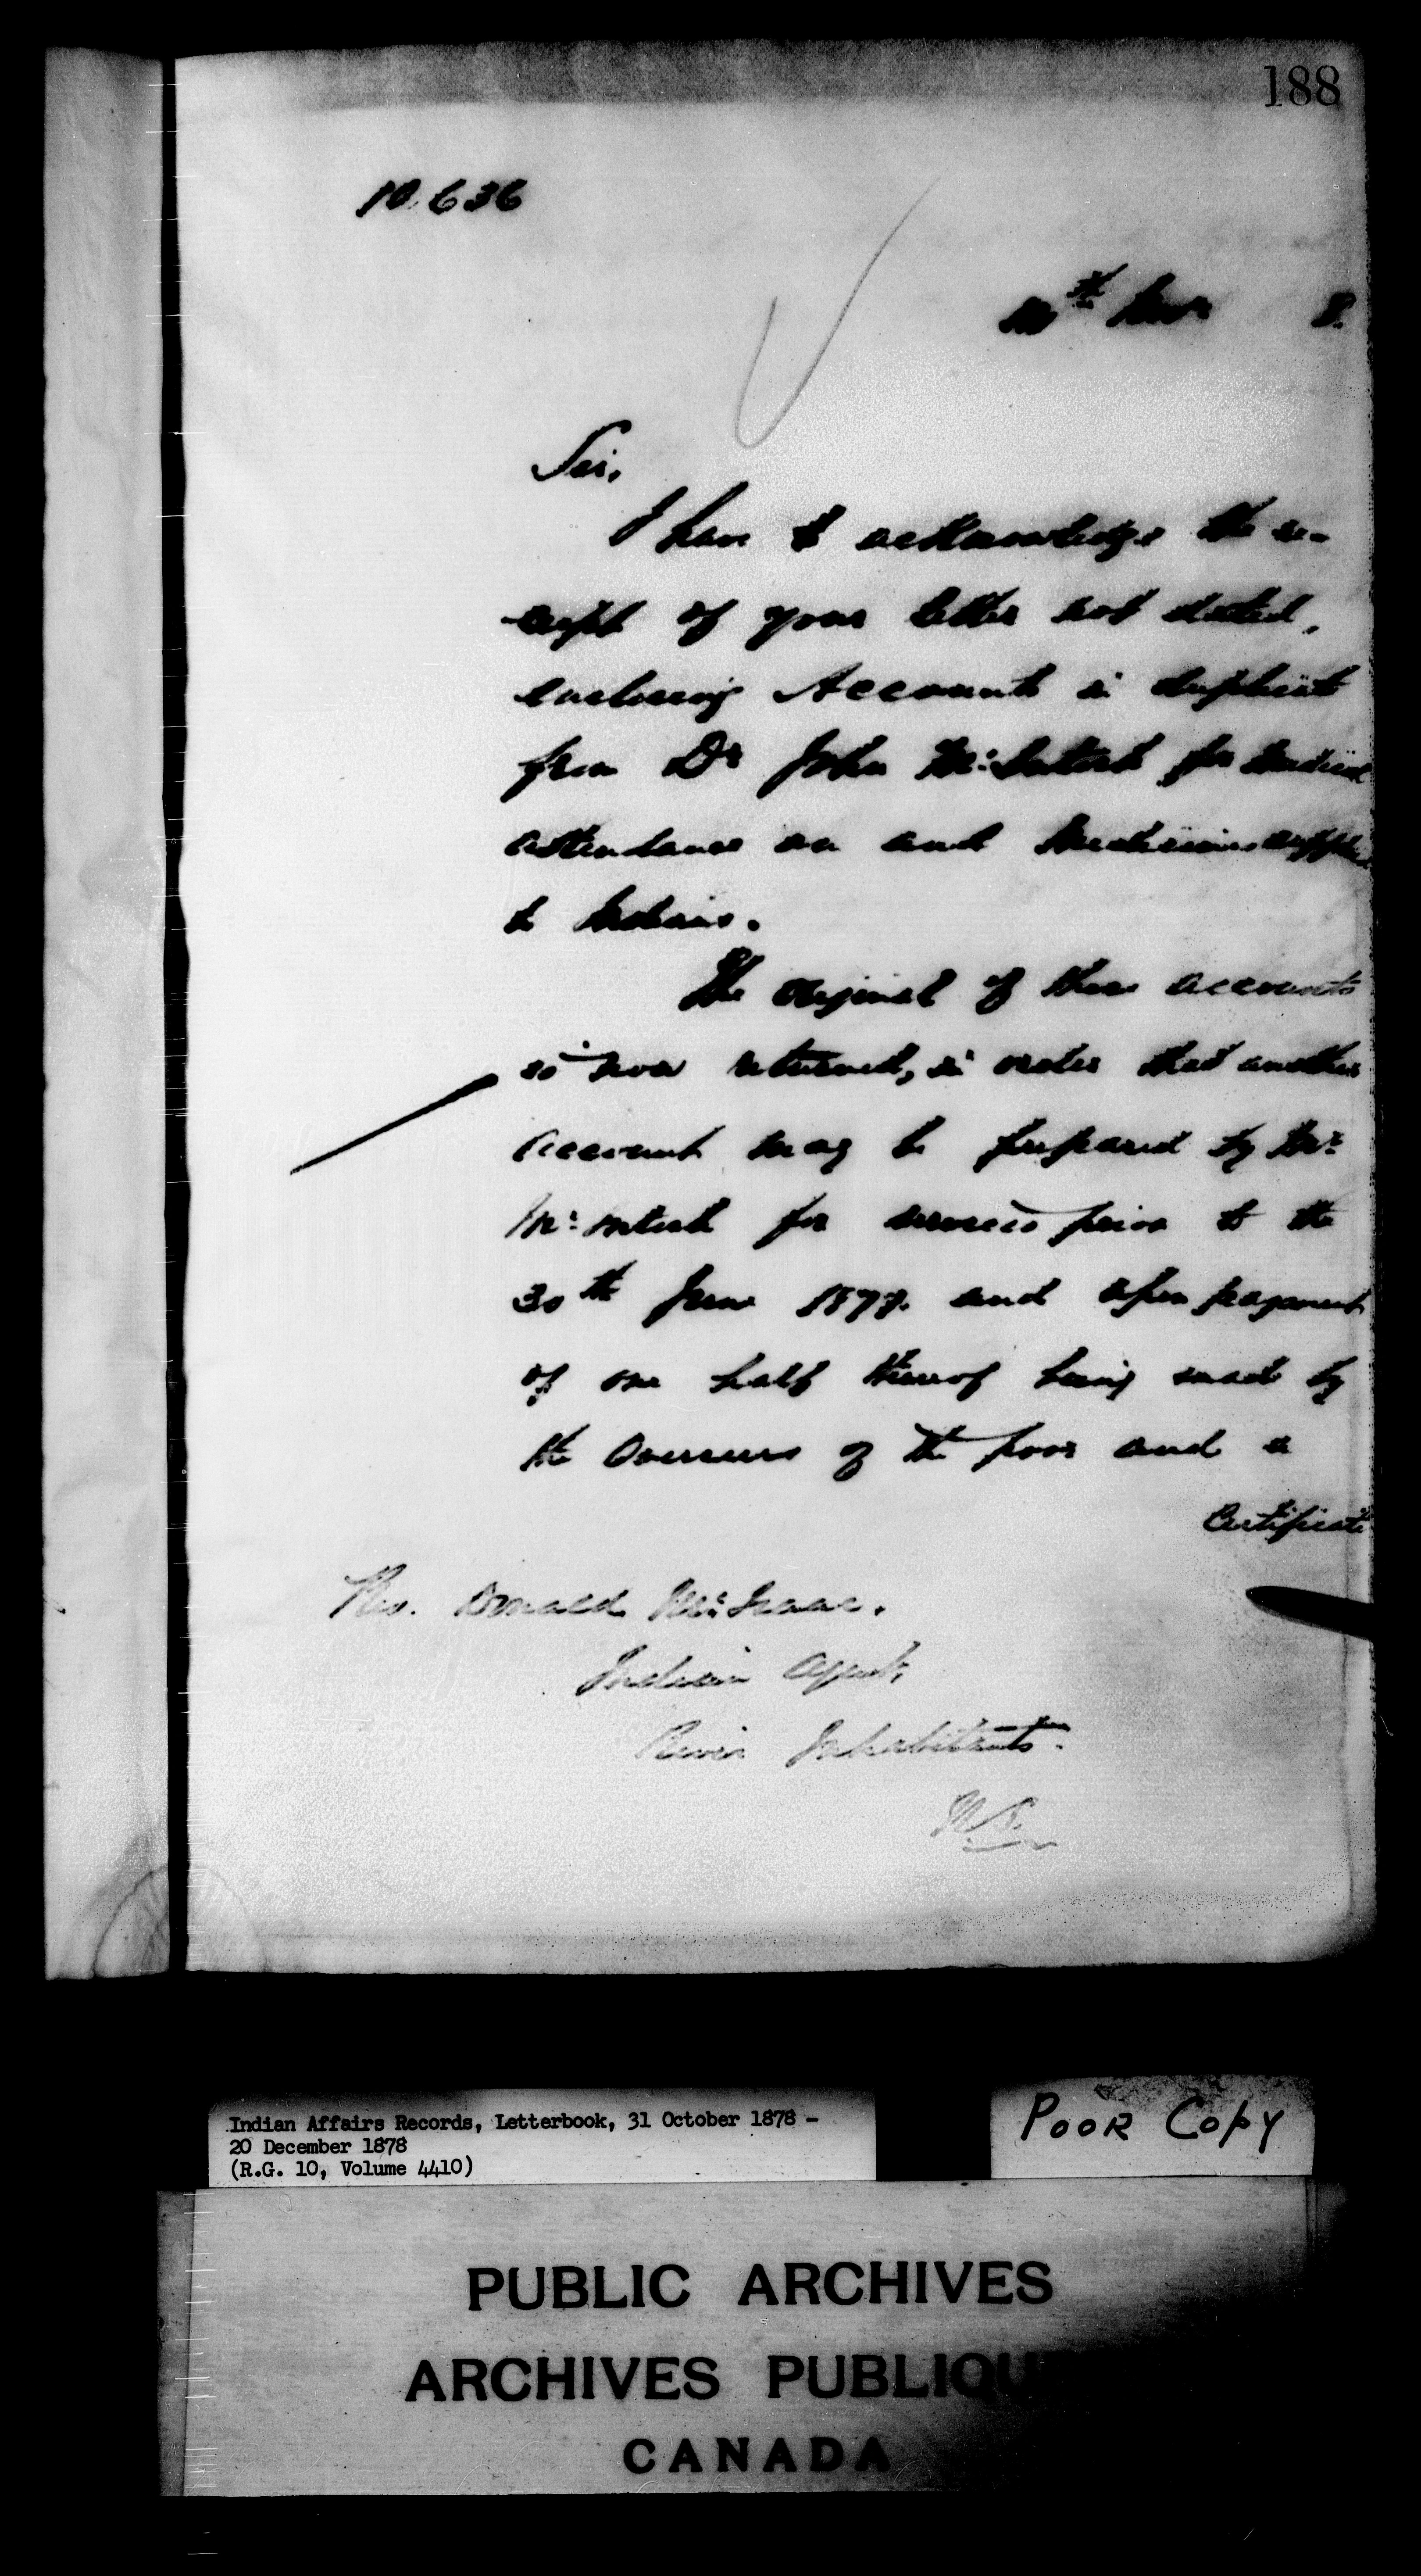 188
10.636
th Novr 8.
Sir,
I have to acknowledge the re-
ceipt of your letter not dated,
enclosing Accounts in duplicate
from Dr John McIntosh for Medical
attendance on and Medicines supplied
to Indians.
The original of these accounts
is now returned, in order that another
account may be prepared by Dr.
McIntosh for services prior to the
30th June 1877. and upon payment
of one half thereof being made by
the Overseers of the poor and a
Certificate
Rev. Donald McIsaac.
Indian Agent,
River Inhabitants.
N.S.
Indian Affairs Records, Letterbook, 31 October 1878 -
20 December 1878
(R.G. 10, Volume 4410)
POOR COPY
PUBLIC ARCHIVES
ARCHIVES PUBLIQU
CANADA